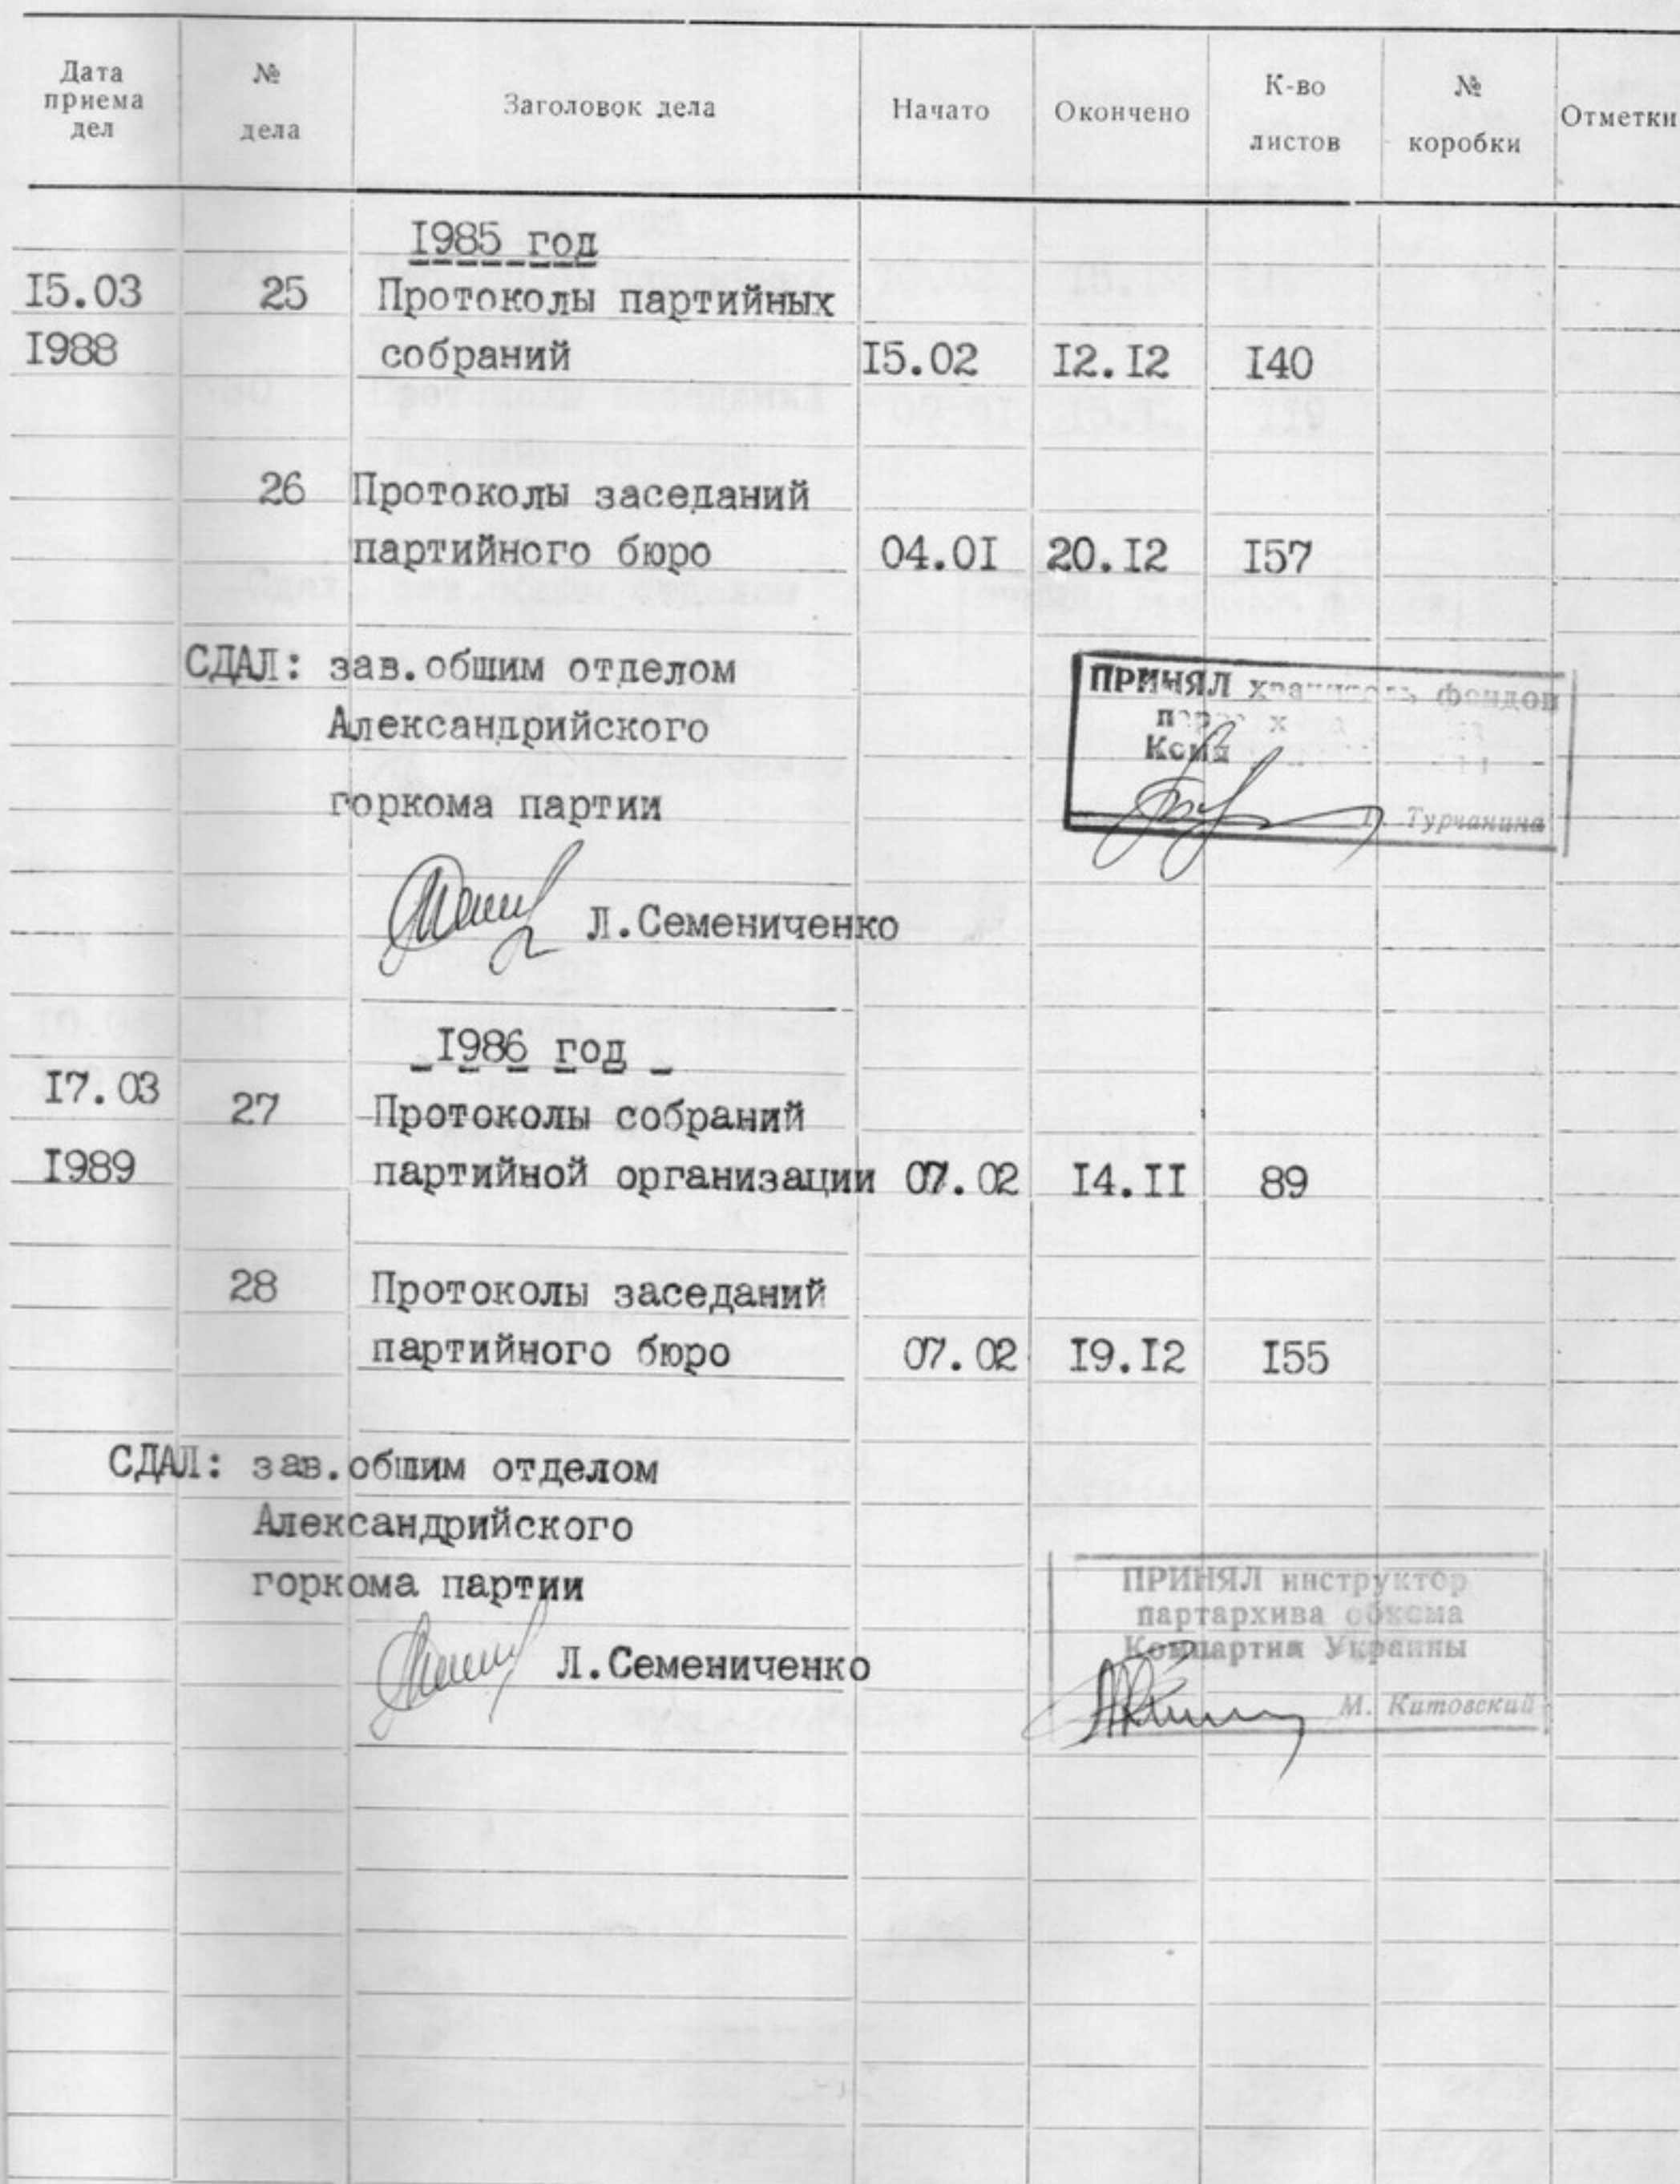 Дата приема дел
№ дела
Заголовок дела
Начато
Окончено
К-во листов
№ коробки
Отметки
I985 год
I5.03 25 Протоколы партийных
I988 собраний I5.02 I2.I2 I40
26 Протоколы заседаний
партийного бюро 04.0I 20.I2 I57
СДАЛ: зав.обшим отделом
Александрийского
горкома партии
ПРИНЯЛ хранитель фондов
Турчанина
Л.Семениченко
I986 год
I7.03 27 Протоколы собраний
I989 партийной организации 07.02 I4.II 89
28 Протоколы заседаний
партийного бюро 07.02 I9.I2 I55
СДАЛ: зав.обшим отделом
Александрийского
горкома партии
ПРИНЯЛ инструктор
партархива обкома
Компартия Украины
Л.Семениченко
М. Китовский